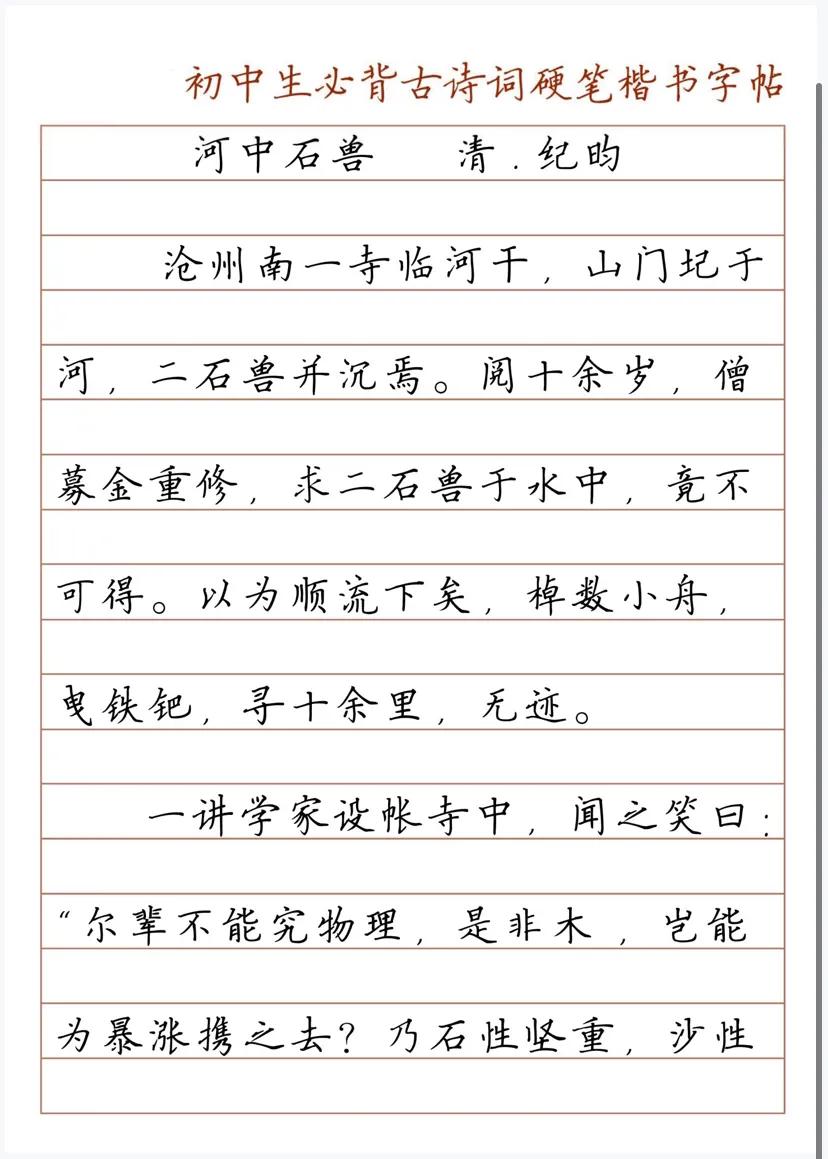 初中生必背古诗词硬笔楷书字帖
河中石兽 清.纪昀
沧州南一寺临河干，山门圮于
河，二石兽并沉焉。阅十余岁，僧
募金重修，求二石兽于水中，竟不
可得。以为顺流下矣，棹数小舟，
曳铁钯，寻十余里，无迹。
一讲学家设帐寺中，闻之笑曰：
“尔辈不能究物理，是非木，岂能
为暴涨携之去？乃石性坚重，沙性